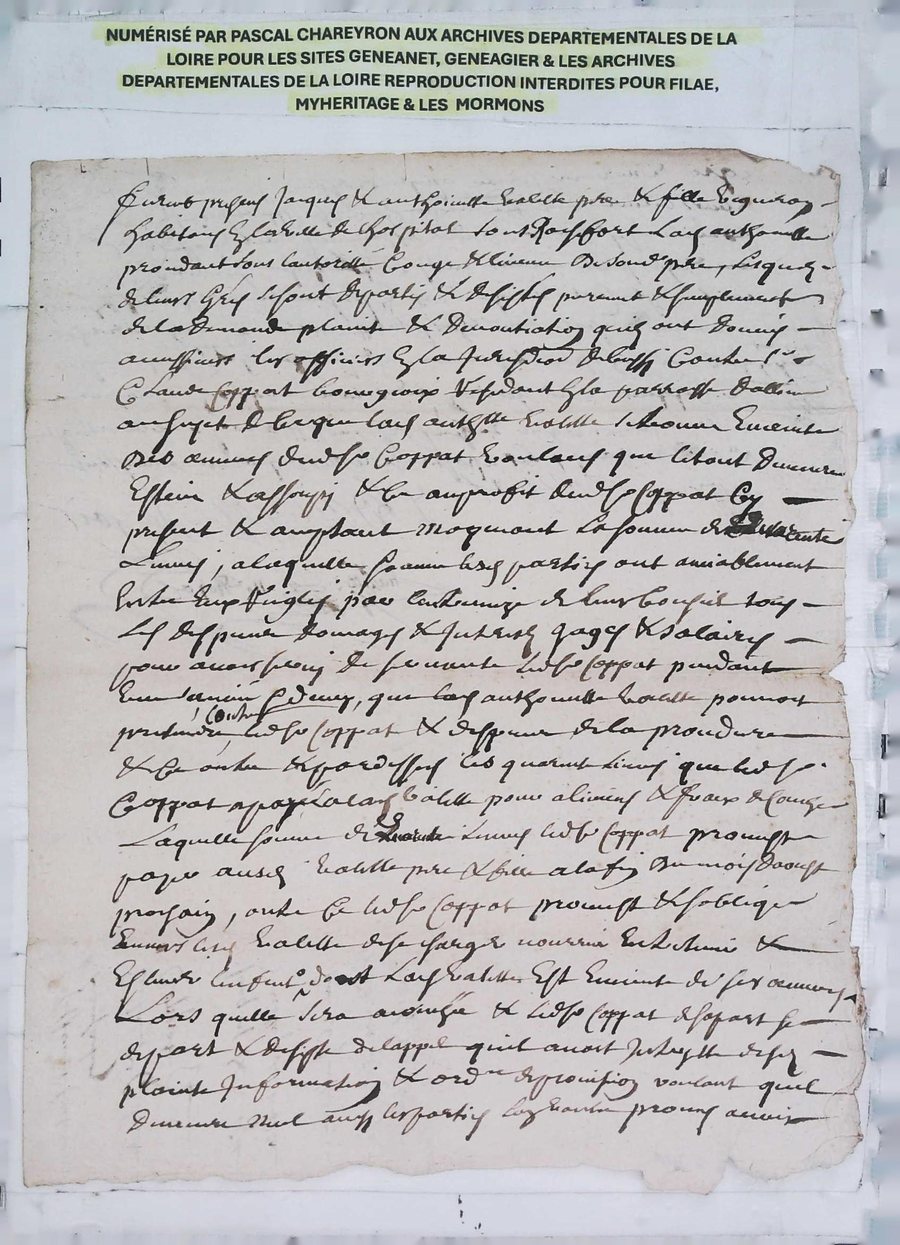 NUMÉRISÉ PAR PASCAL CHAREYRON AUX ARCHIVES DEPARTEMENTALES DE LA
LOIRE POUR LES SITES GENEANET, GENEAGIER & LES ARCHIVES
DEPARTEMENTALES DE LA LOIRE REPRODUCTION INTERDITES POUR FILAE,
MYHERITAGE & LES MORMONS
Furent presens Jacques & anthoinette Valette pere & fille vigneron
habitans de la ville de lhospital sous Rochefort Lad anthoinette
sous lautorité Conge & licence Dud son pere, Lesquels
de leurs grés se sont departis & desistés purement & simplement
de la demande plainte & denontiation quils ont donnés
les officiers la Contre Sr
Claude Coppat bourgeois residant en la parroisse dallieu
au sujet de ce que lad valette se trouve Enceinte
Des œuvres dud Sr Coppat voulans que le tout Demeure
Esteint & assoupi & ce au profit dud Sr Coppat Cy
present & acceptant moyenant La somme de
Livres, a laquelle somme lesd parties ont amiablement
Entre Eux par de leurs tous
Les despens domages & Interests gages & salaires
pour avoir servy de servante led Sr Coppat pendant
que lad anthoinette Valette pouvoit
pretendre contre led Sr Coppat & despens de la procedure
& ce outre & pardessus les quarente Livres que led Sr
Coppat a payé a lad Valette pour alimens & fraix de Couche
Laquelle somme de Livres led Sr Coppat promest
payer ausd Valette pere & fille a la fin Du mois daoust
prochain, outre ce led Sr Coppat promest & soblige
Envers lesd Valette de se charger nourrir Entretenir &
Eslever lenfent dont Lad Valette Est Enceinte de ses œuvres
Lors quelle sera acouchée & led Sr Coppat de sa part se
depart & desiste de lappel quil avoit Interjetté desd
plainte Information & ordce de provision voulant quil
Demeure Nul les parties